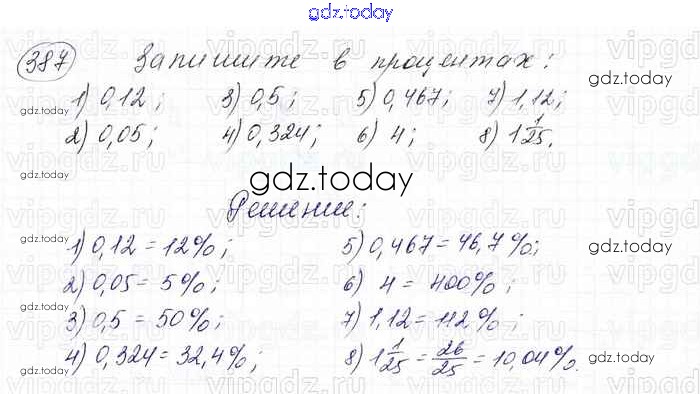 gdz.today
387 Запишите в процентах:
1) 0,12; 3) 0,5; 5) 0,467; 7) 1,12;
2) 0,05; 4) 0,324; 6) 4; 8) 1 1/25.
gdz.today
gdz.today
gdz.today
gdz.today
Решение:
1) 0,12 = 12%; 5) 0,467 = 46,7%;
2) 0,05 = 5%; 6) 4 = 400%;
3) 0,5 = 50%; 7) 1,12 = 112%;
4) 0,324 = 32,4%; 8) 1 1/25 = 26/25 = 10,04%.
gdz.today
gdz.today
gdz.today
gdz.today
gdz.today